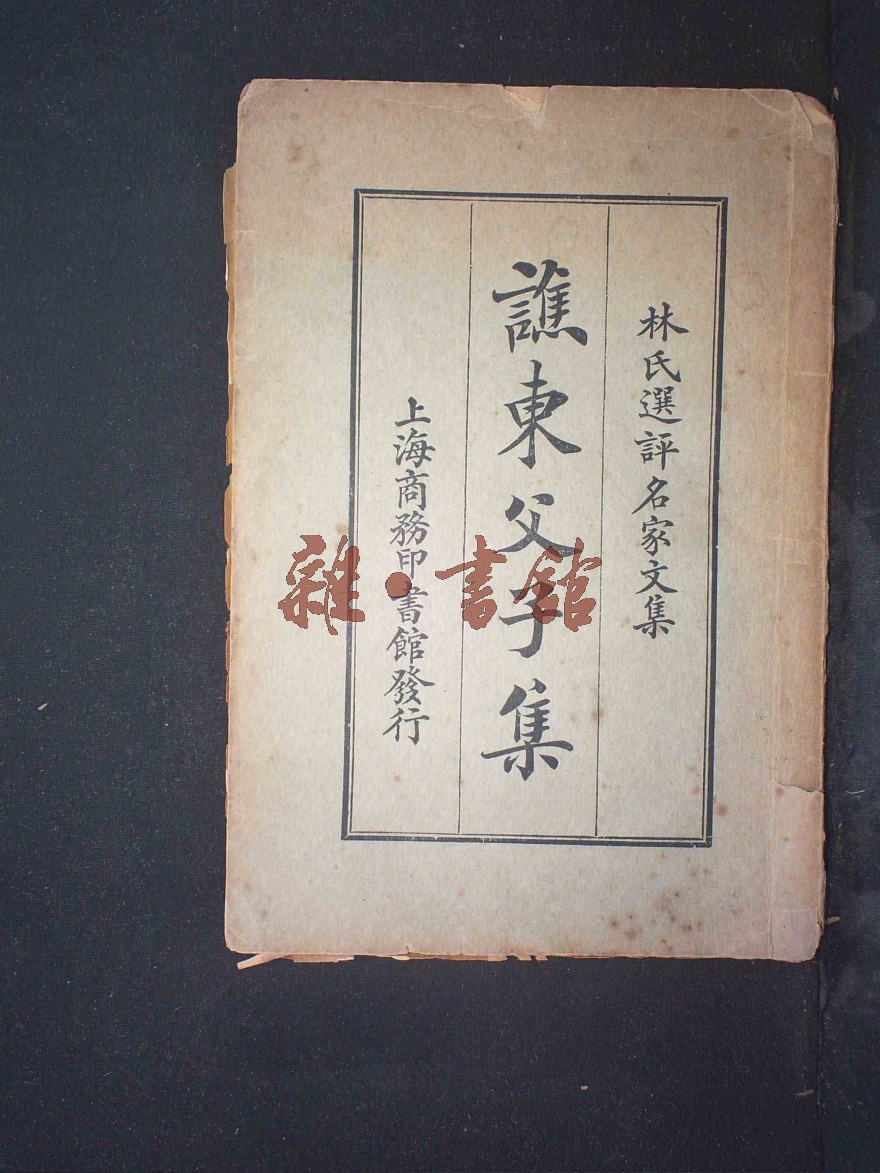 林氏選評名家文集
譙東父子集
上海商務印書館發行
雜·書館